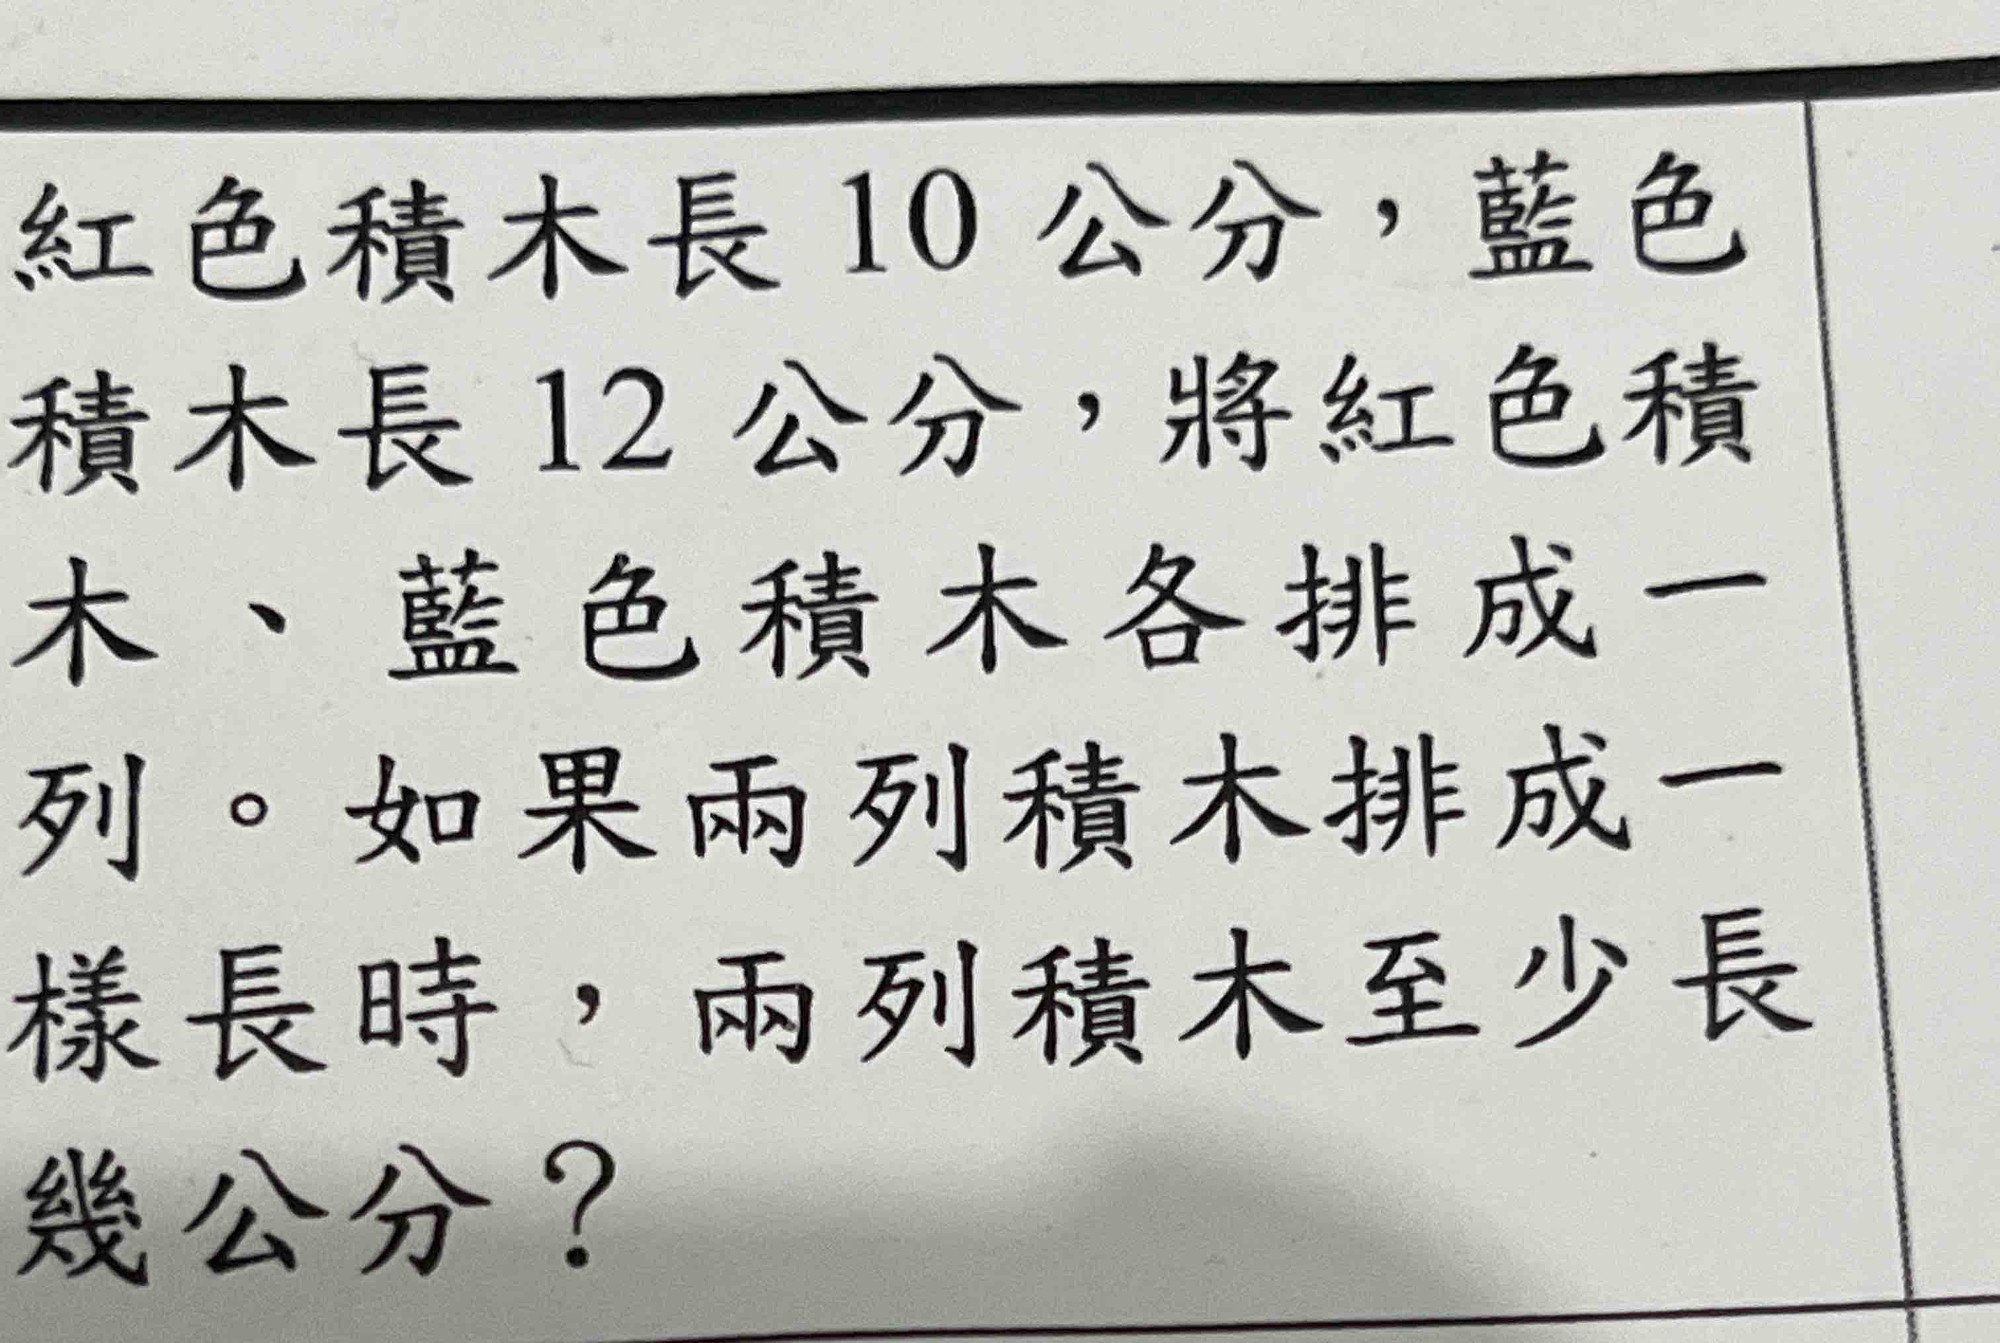 紅色積木長 10 公分，藍色
積木長 12 公分，將紅色積
木、藍色積木各排成一
列。如果兩列積木排成一
樣長時，兩列積木至少長
幾公分？